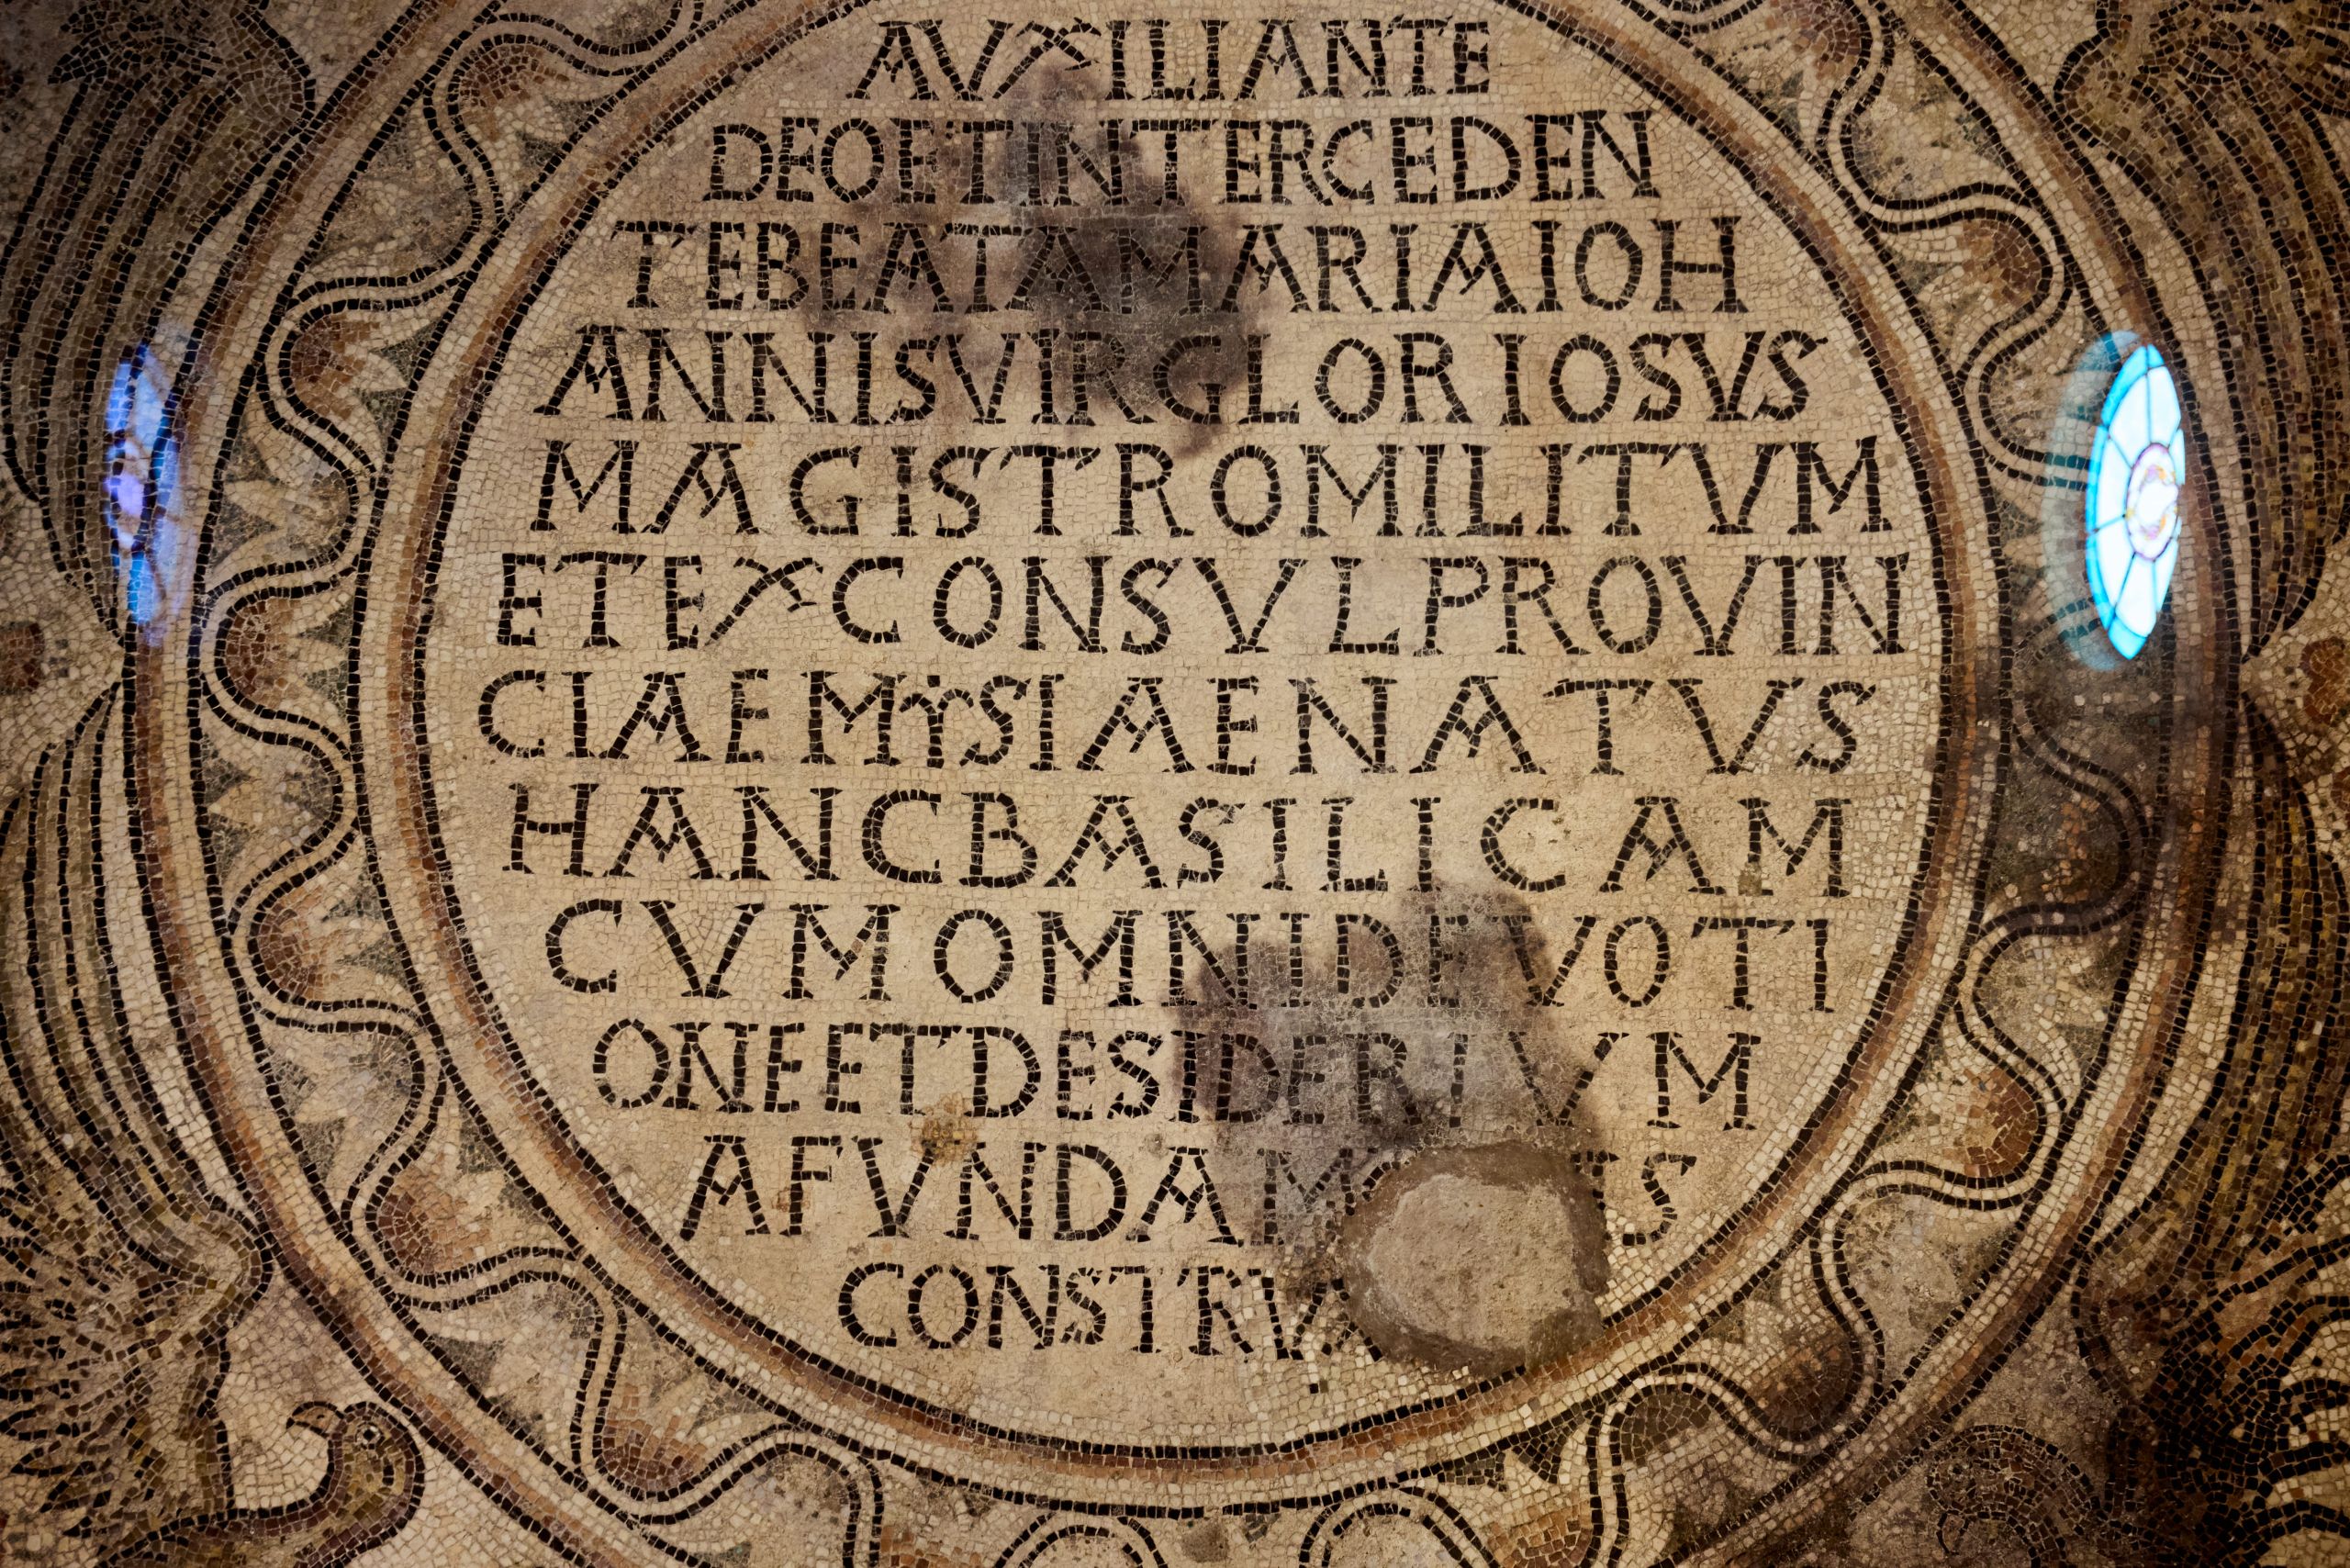 AVXILIANTE
DEOETINTERCEDEN
TEBEATAMARIAIOH
ANNISVIRGLORIOSVS
MAGISTROMILITVM
ETEXCONSVLPROVIN
CIAEMYSIAENATVS
HANCBASILICAM
CVMOMNIDEVOTI
ONEETDESIDERIVM
AFVNDAM TS
CONSTRV